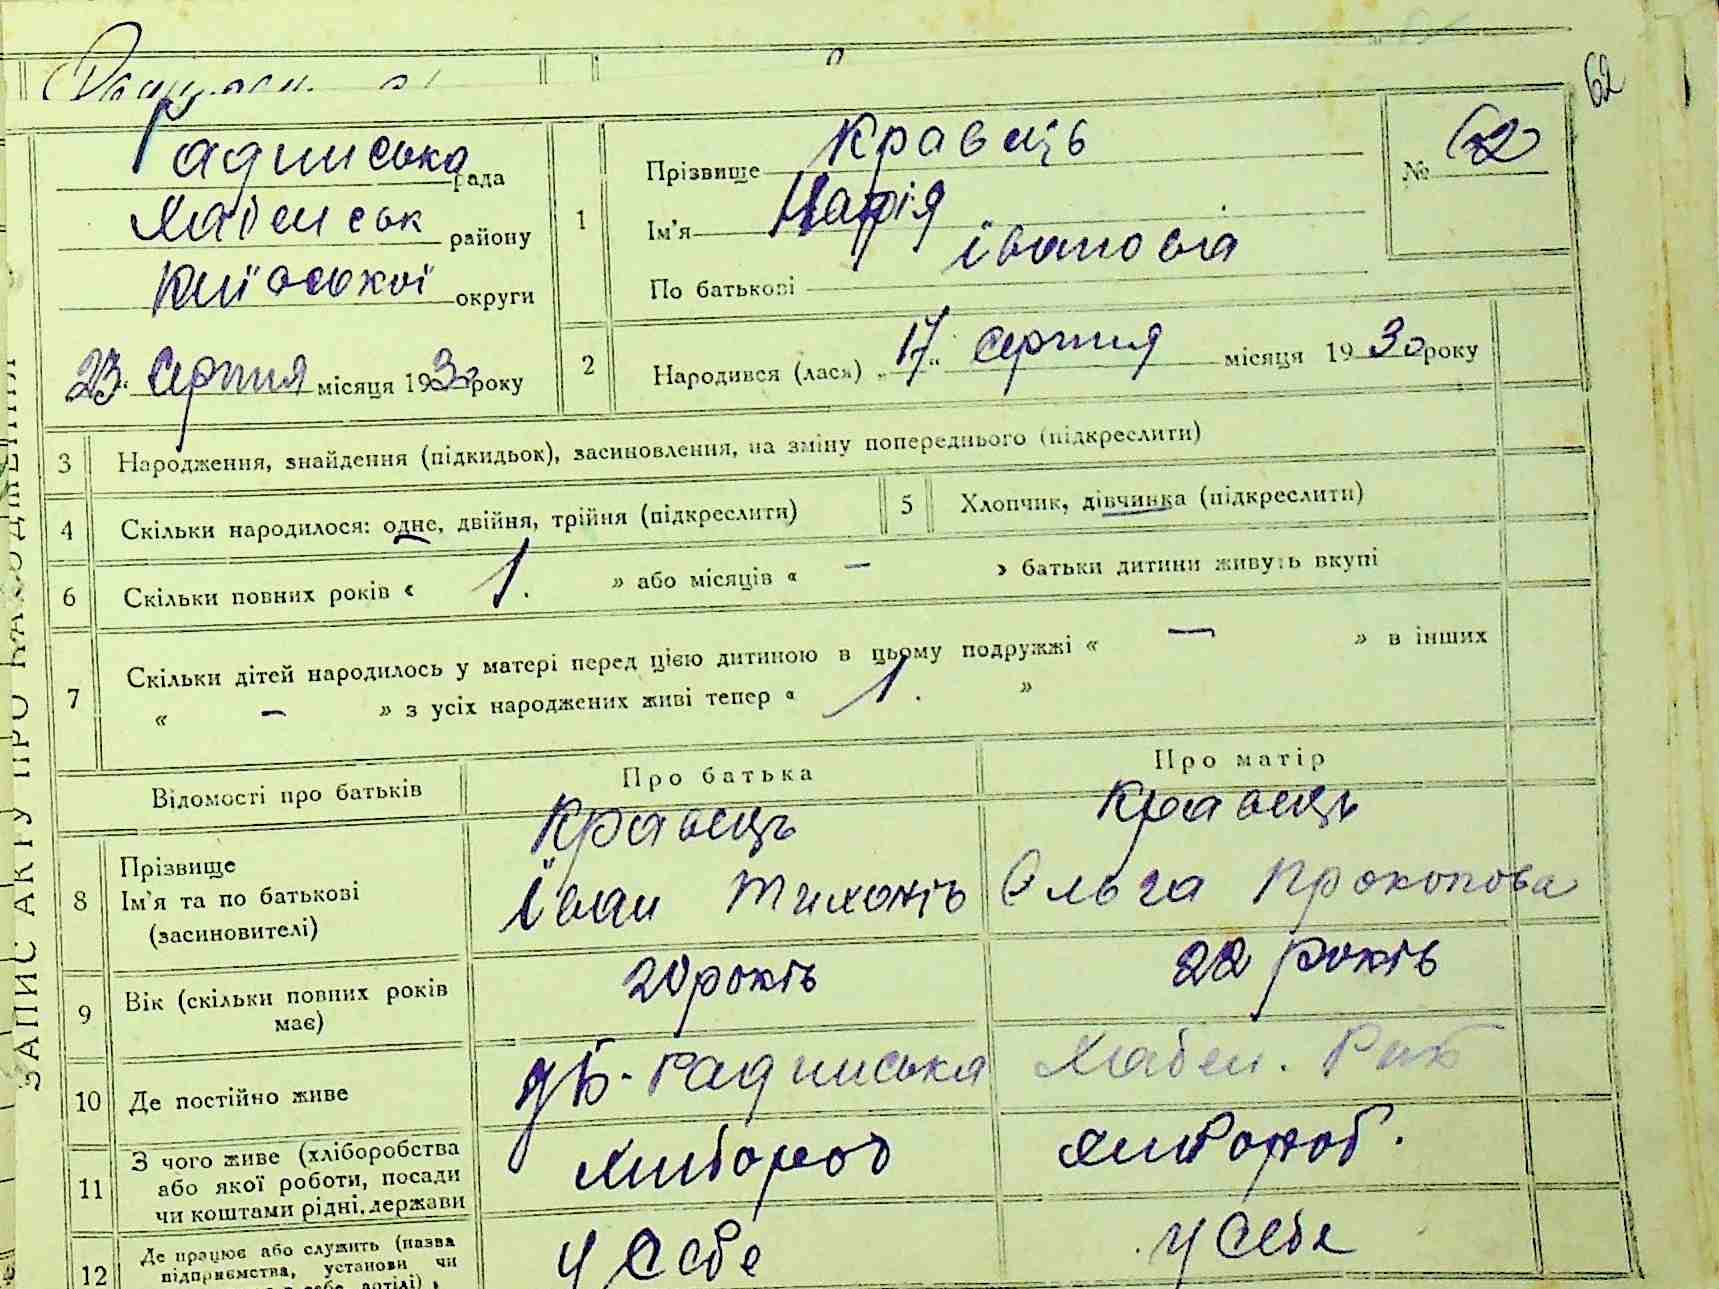 62
Радчиська рада
Хабенськ району
Київської округи
23 серпня місяця 1930 року
1 Прізвище Кравець
Ім'я Марія
По батькові Іванова
№ 62
2 Народився (лася) „17“ серпня місяця 1930 року
3 Народження, знайдення (підкидьок), засиновлення, на зміну попереднього (підкреслити)
4 Скільки народилося: одне, двійня, трійня (підкреслити) 5 Хлопчик, дівчинка (підкреслити)
6 Скільки повних років « 1. » або місяців « — » батьки дитини живуть вкупі
7 Скільки дітей народилось у матері перед цією дитиною в цьому подружжі « — » в інших
« — » з усіх народжених живі тепер « 1. »
Відомості про батьків Про батька Про матір
8 Прізвище Кравець Кравець
Ім'я та по батькові Іван Тихонів Ольга Прокопова
(засиновителі)
9 Вік (скільки повних років має) 20 років 22 років
10 Де постійно живе Радчиська Хабен.
11 З чого живе (хліборобства
або якої роботи, посади
чи коштами рідні, держави
хлібороб хлібороб.
12 Де працює або служить (назва
підприємства, установи чи
у себе у себе
ЗАПИС АКТУ ПРО НАРОДЖЕННЯ